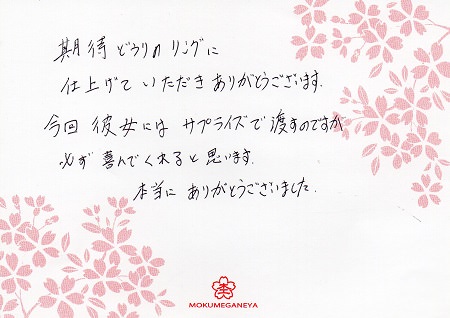 期待どうりのリングに
仕上げていただきありがとうございます.
今回 彼女にはサプライズで渡すのですが
必ず喜んでくれると思います.
本当にありがとうございました.
MOKUMEGANEYA